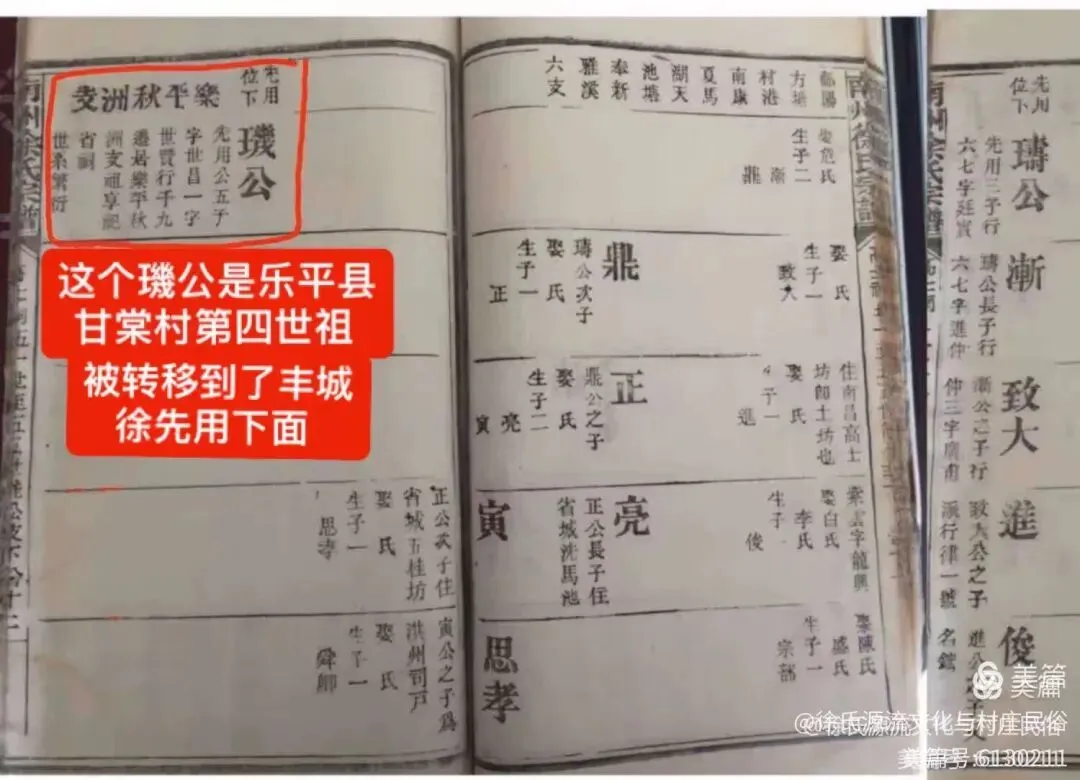 先用
位下
璹公
先用三子行
六七字廷實
漸
璹公長子行
六七字進仲
致大
漸公之子行
仲三字廣甫
進
致大公之子
行律一號
俊
進公之子
名鑑
南州徐氏宗譜
鄱陽
方塘
村港
南康
夏馬
湖天
池塘
奉新
雅溪
六支
娶危氏
生子二
漸
鼎
娶 氏
生子一
致大
住南昌高士
坊師土坊也
娶 氏
子一
進
字龍興
娶白氏
李氏
生子一
俊
娶陳氏
盛氏
生子一
鼎
璹公次子
娶 氏
生子一
正
正
鼎公之子
娶 氏
生子二
亮
寅
亮
正公長子住
省城洗馬池
寅
思孝
正公次子住
省城五桂坊
娶 氏
生子一
思孝
寅公之子爲
洪州司戶
娶 氏
生子一
舜卿
先用
位下
樂平秋洲支
璣公
先用公五子
字世昌一字
世賢行千九
遷居樂平秋
洲支祖享祀
省祠
世系繁衍
南州徐氏宗譜
这个璣公是乐平县
甘棠村第四世祖
被转移到了丰城
徐先用下面
美篇
@徐氏源流文化与村庄民俗
美篇号:6130211